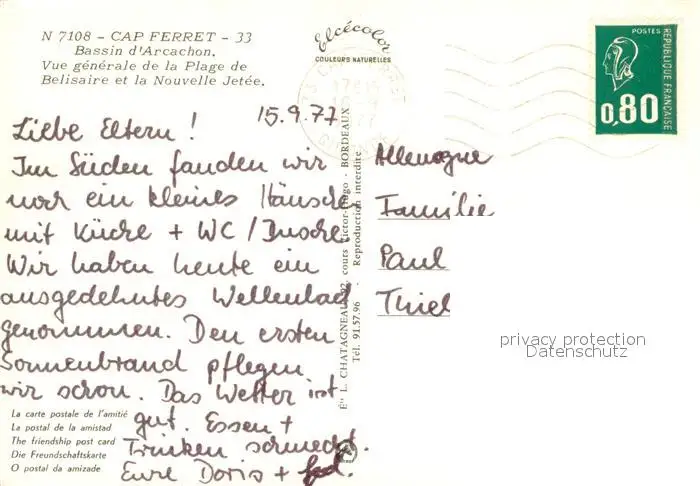 N 7108 - CAP FERRET - 33
Bassin d'Arcachon.
Vue générale de la Plage de
Belisaire et la Nouvelle Jetée.
Elcécolor
COULEURS NATURELLES
POSTES
RÉPUBLIQUE FRANÇAISE
0,80
15.9.77
Liebe Eltern !
Im Süden fanden wir
noch ein kleines Häuschen
mit Küche + WC / Dusche.
Wir haben heute ein
ausgedehntes Wellenbad
genommen. Den ersten
Sonnenbrand pflegen
wir schon. Das Wetter ist
gut. Essen +
Trinken schmeckt.
Eure Doris +
Allemagne
Familie
Paul
Thiel
Éts L. CHATAGNEAU, 92, cours Victor-Hugo - BORDEAUX
Tél. 91.57.96 - Reproduction interdite
privacy protection
Datenschutz
La carte postale de l'amitié
La postal de la amistad
The friendship post card
Die Freundschaftskarte
O postal da amizade